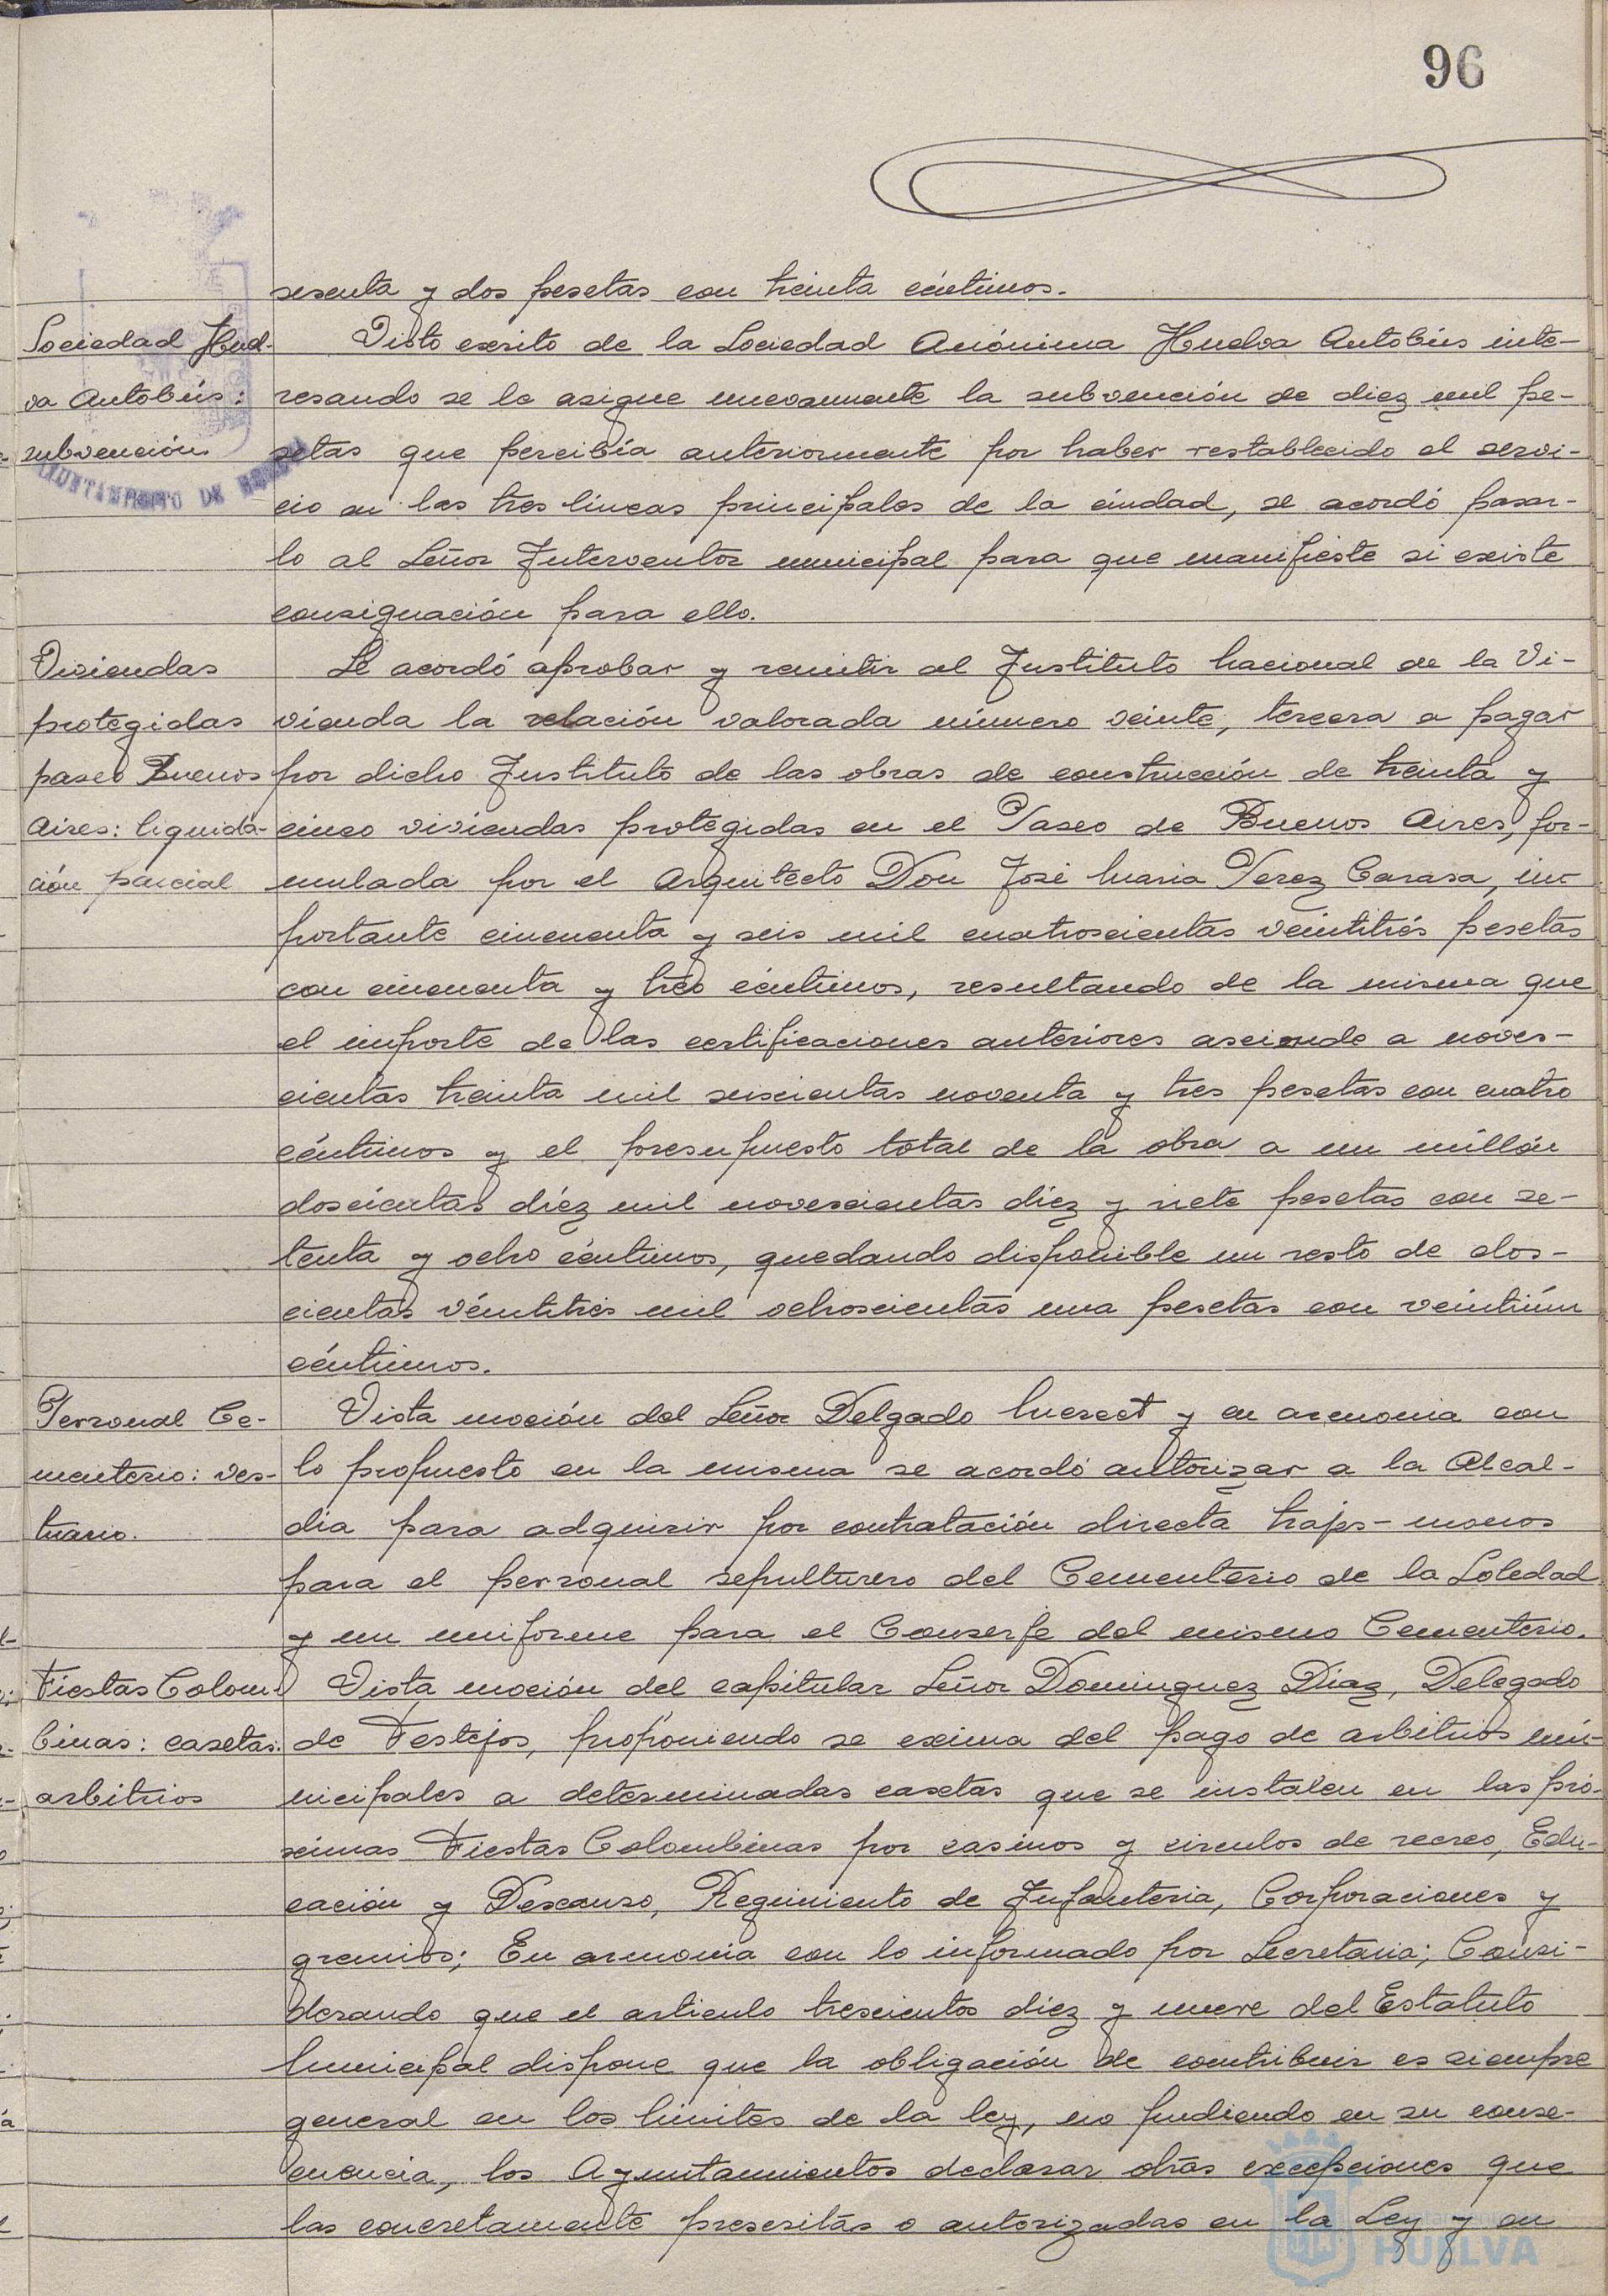 96
sesenta y dos pesetas con treinta céntimos.
Sociedad Huel-
va Autobús:
subvención
Visto escrito de la Sociedad Anónima Huelva Autobús inte-
resando se le asigne nuevamente la subvención de diez mil pe-
setas que percibía anteriormente por haber restablecido el servi-
cio en las tres líneas principales de la ciudad, se acordó pasar-
lo al Señor Interventor municipal para que manifieste si existe
consignación para ello.
Viviendas
protegidas
paseo Buenos
Aires: liquida-
ción parcial
Se acordó aprobar y remitir al Instituto Nacional de la Vi-
vienda la relación valorada número veinte, tercera a pagar
por dicho Instituto de las obras de construcción de treinta y
cinco viviendas protegidas en el Paseo de Buenos Aires, for-
mulada por el Arquitecto Don José Maria Perez Carasa, im-
portante cincuenta y seis mil cuatroscientas veintitrés pesetas
con cincuenta y tres céntimos, resultando de la misma que
el importe de las certificaciones anteriores asciende a noves-
cientas treinta mil seiscientas noventa y tres pesetas con cuatro
céntimos y el presupuesto total de la obra a un millón
doscientas diez mil novescientas diez y siete pesetas con se-
tenta y ocho céntimos, quedando disponible un resto de dos-
cientas véintitres mil ochoscientas una pesetas con veintiún
céntimos.
Personal Ce-
menterio: ves-
tuario.
Vista moción del Señor Delgado Merect y en armonia con
lo propuesto en la misma se acordó autorizar a la Alcal-
dia para adquirir por contratación directa trajes-monos
para el personal sepulturero del Cementerio de la Soledad
y un uniforme para el Conserje del mismo Cementerio.
Fiestas Colom-
binas: casetas.
arbitrios
Vista moción del capitular Señor Dominguez Diaz, Delegado
de Festejos, proponiendo se exima del pago de arbitrios mu-
nicipales a determinadas casetas que se instalen en las pró-
ximas Fiestas Colombinas por casinos y circulos de recreo, Edu-
cación y Descanso, Regimiento de Infanteria, Corporaciones y
gremios; En armonia con lo informado por Secretaria; Consi-
derando que el articulo trescientos diez y nueve del Estatuto
Municipal dispone que la obligación de contribuir es siempre
general en los limites de la ley, no pudiendo en su conse-
cuencia, los Ayuntamientos declarar otras excepciones que
las concretamente prescritas o autorizadas en la Ley y en
AYUNTAMIENTO DE HUELVA
HUELVA